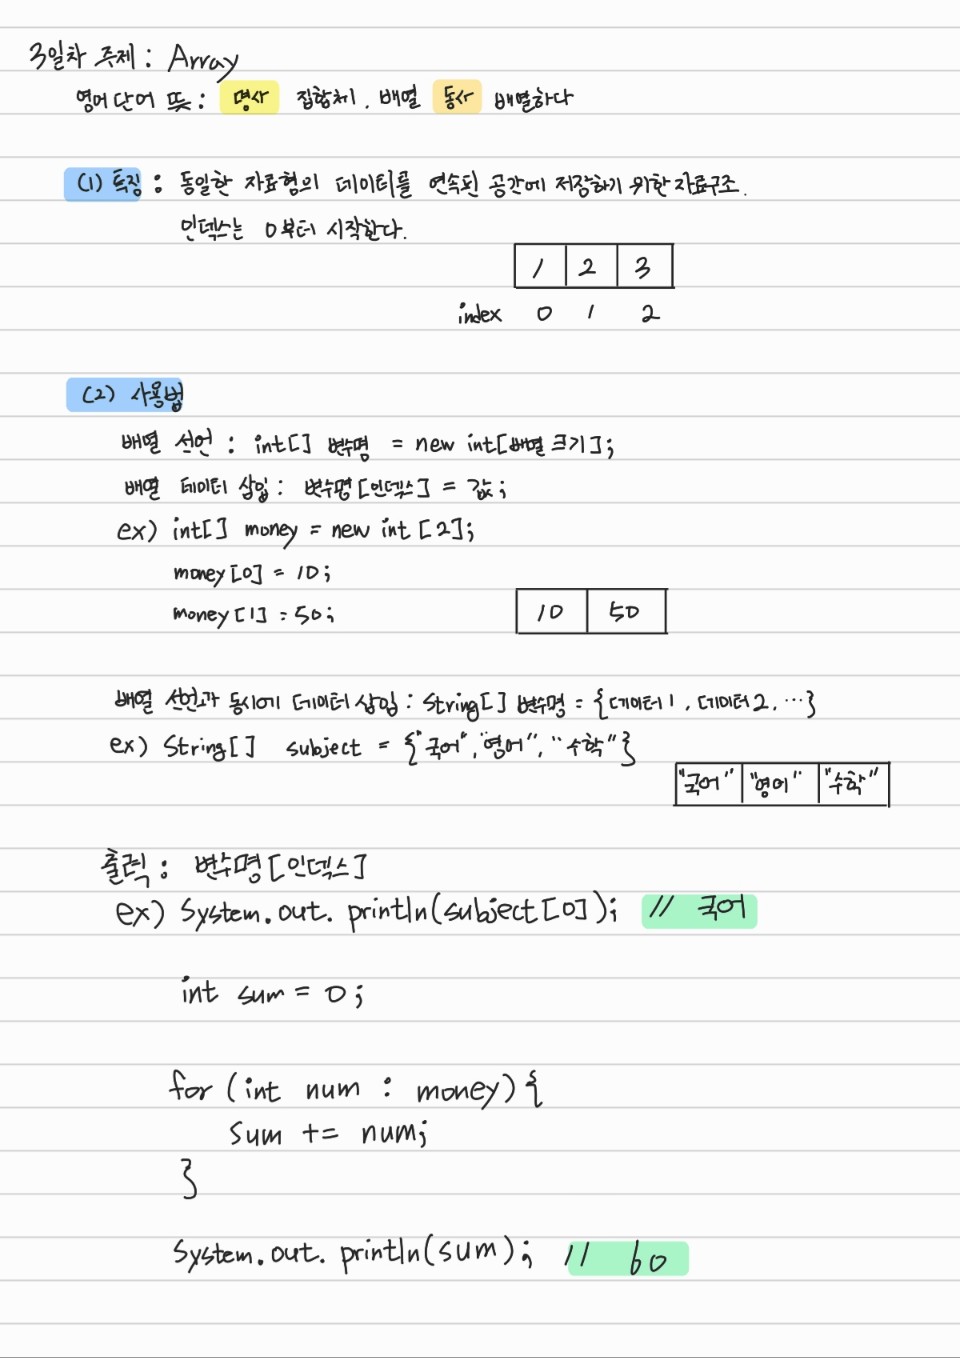 3일차 주제 : Array
영어 단어 뜻 : 명사 집합체, 배열 동사 배열하다
(1) 특징 : 동일한 자료형의 데이터를 연속된 공간에 저장하기 위한 자료구조.
인덱스는 0부터 시작한다.
1 2 3
index 0 1 2
(2) 사용법
배열 선언 : int[] 변수명 = new int[배열 크기];
배열 데이터 삽입 : 변수명[인덱스] = 값;
ex) int[] money = new int [2];
money[0] = 10;
money[1] = 50;
10 50
배열 선언과 동시에 데이터 삽입 : String[] 변수명 = {데이터1, 데이터2, ...}
ex) String[] subject = {"국어", "영어", "수학"}
"국어" "영어" "수학"
출력 : 변수명[인덱스]
ex) System.out.println(subject[0]); // 국어
int sum = 0;
for (int num : money) {
sum += num;
}
System.out.println(sum); // 60